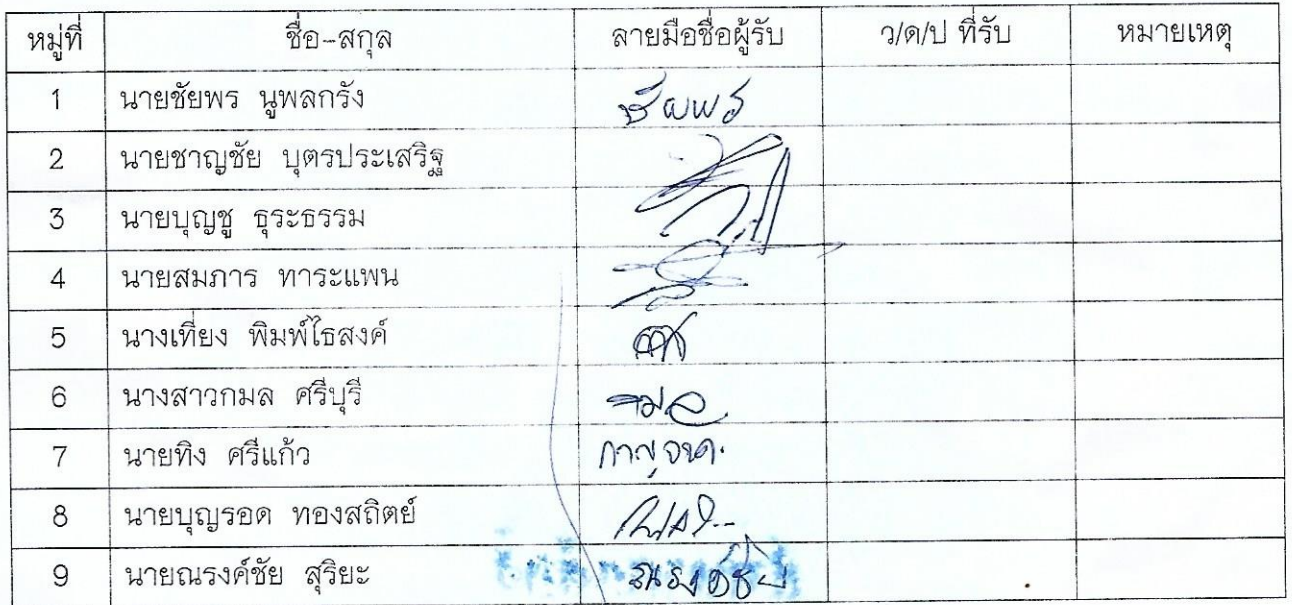 หมู่ที่ ชื่อ-สกุล ลายมือชื่อผู้รับ ว/ด/ป ที่รับ หมายเหตุ
1 นายชัยพร นูพลกรัง ชัยพร
2 นายชาญชัย บุตรประเสริฐ
3 นายบุญชู ธุระธรรม
4 นายสมภาร ทาระแพน
5 นางเที่ยง พิมพ์ไธสงค์
6 นางสาวกมล ศรีบุรี
7 นายทิง ศรีแก้ว กาญจนา
8 นายบุญรอด ทองสถิตย์
9 นายณรงค์ชัย สุริยะ ณรงค์ชัย